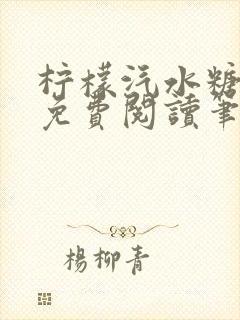 柠檬汽水糖
免費閱讀筆
楊柳青